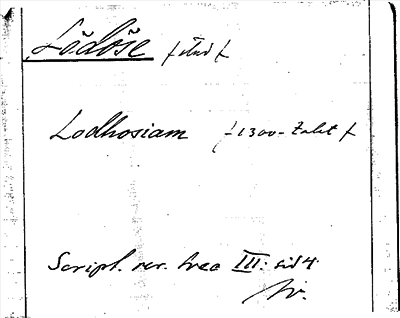 Lödöse /stad/
Lodhosiam /-1300-talet/
Script. rer. svec III: sid 4